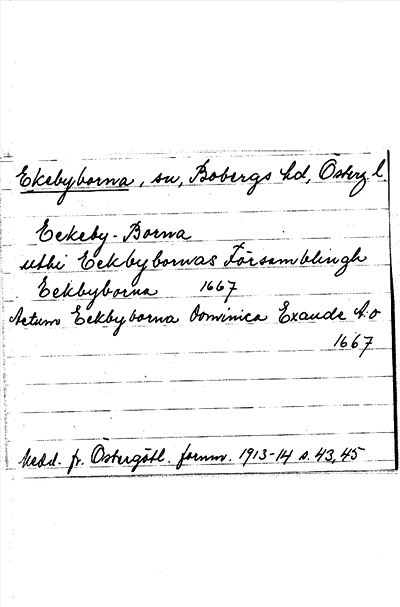 Ekebyborna, sn, Bobergs hd, Österg. l.
Eekeby-Borna
uthi Eekbybornas Församblingh
Eekbyborna 1667
Actum Eekbyborna Dominica Exaude A:o
1667
Medd. fr. Östergötl. fornm. 1913-14 s. 43, 45